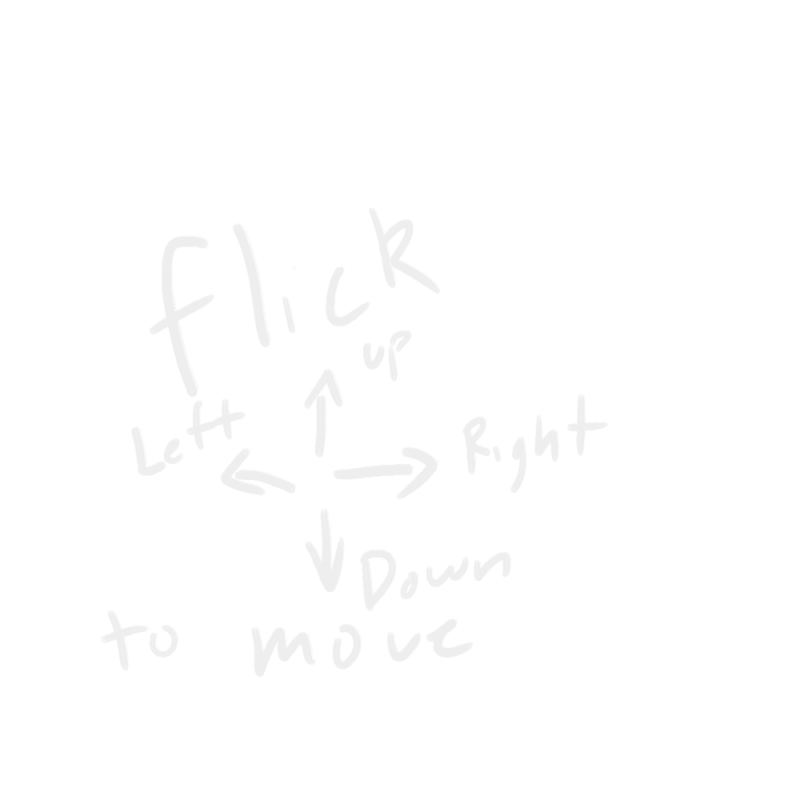 flick
up
Left
Right
Down
to move